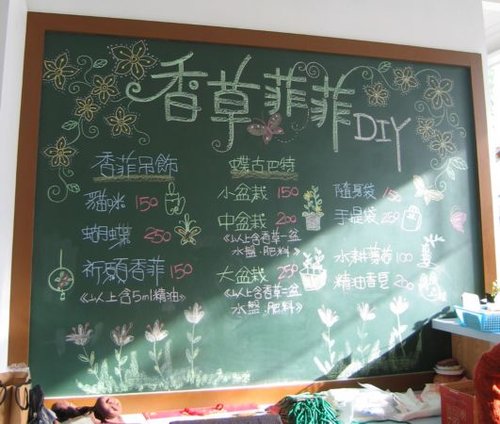 香草菲菲DIY
香菲吊飾
貓咪 150
蝴蝶 250
祈願香菲 150
《以上含5ml精油》
蝶古巴特
小盆栽 150
中盆栽 200
《以上含香草一盆
水盤.肥料》
大盆栽 250
《以上含香草三盆
水盤.肥料》
隨身袋 150
手提袋 250
水耕蕃茄 100
精油香豆 200